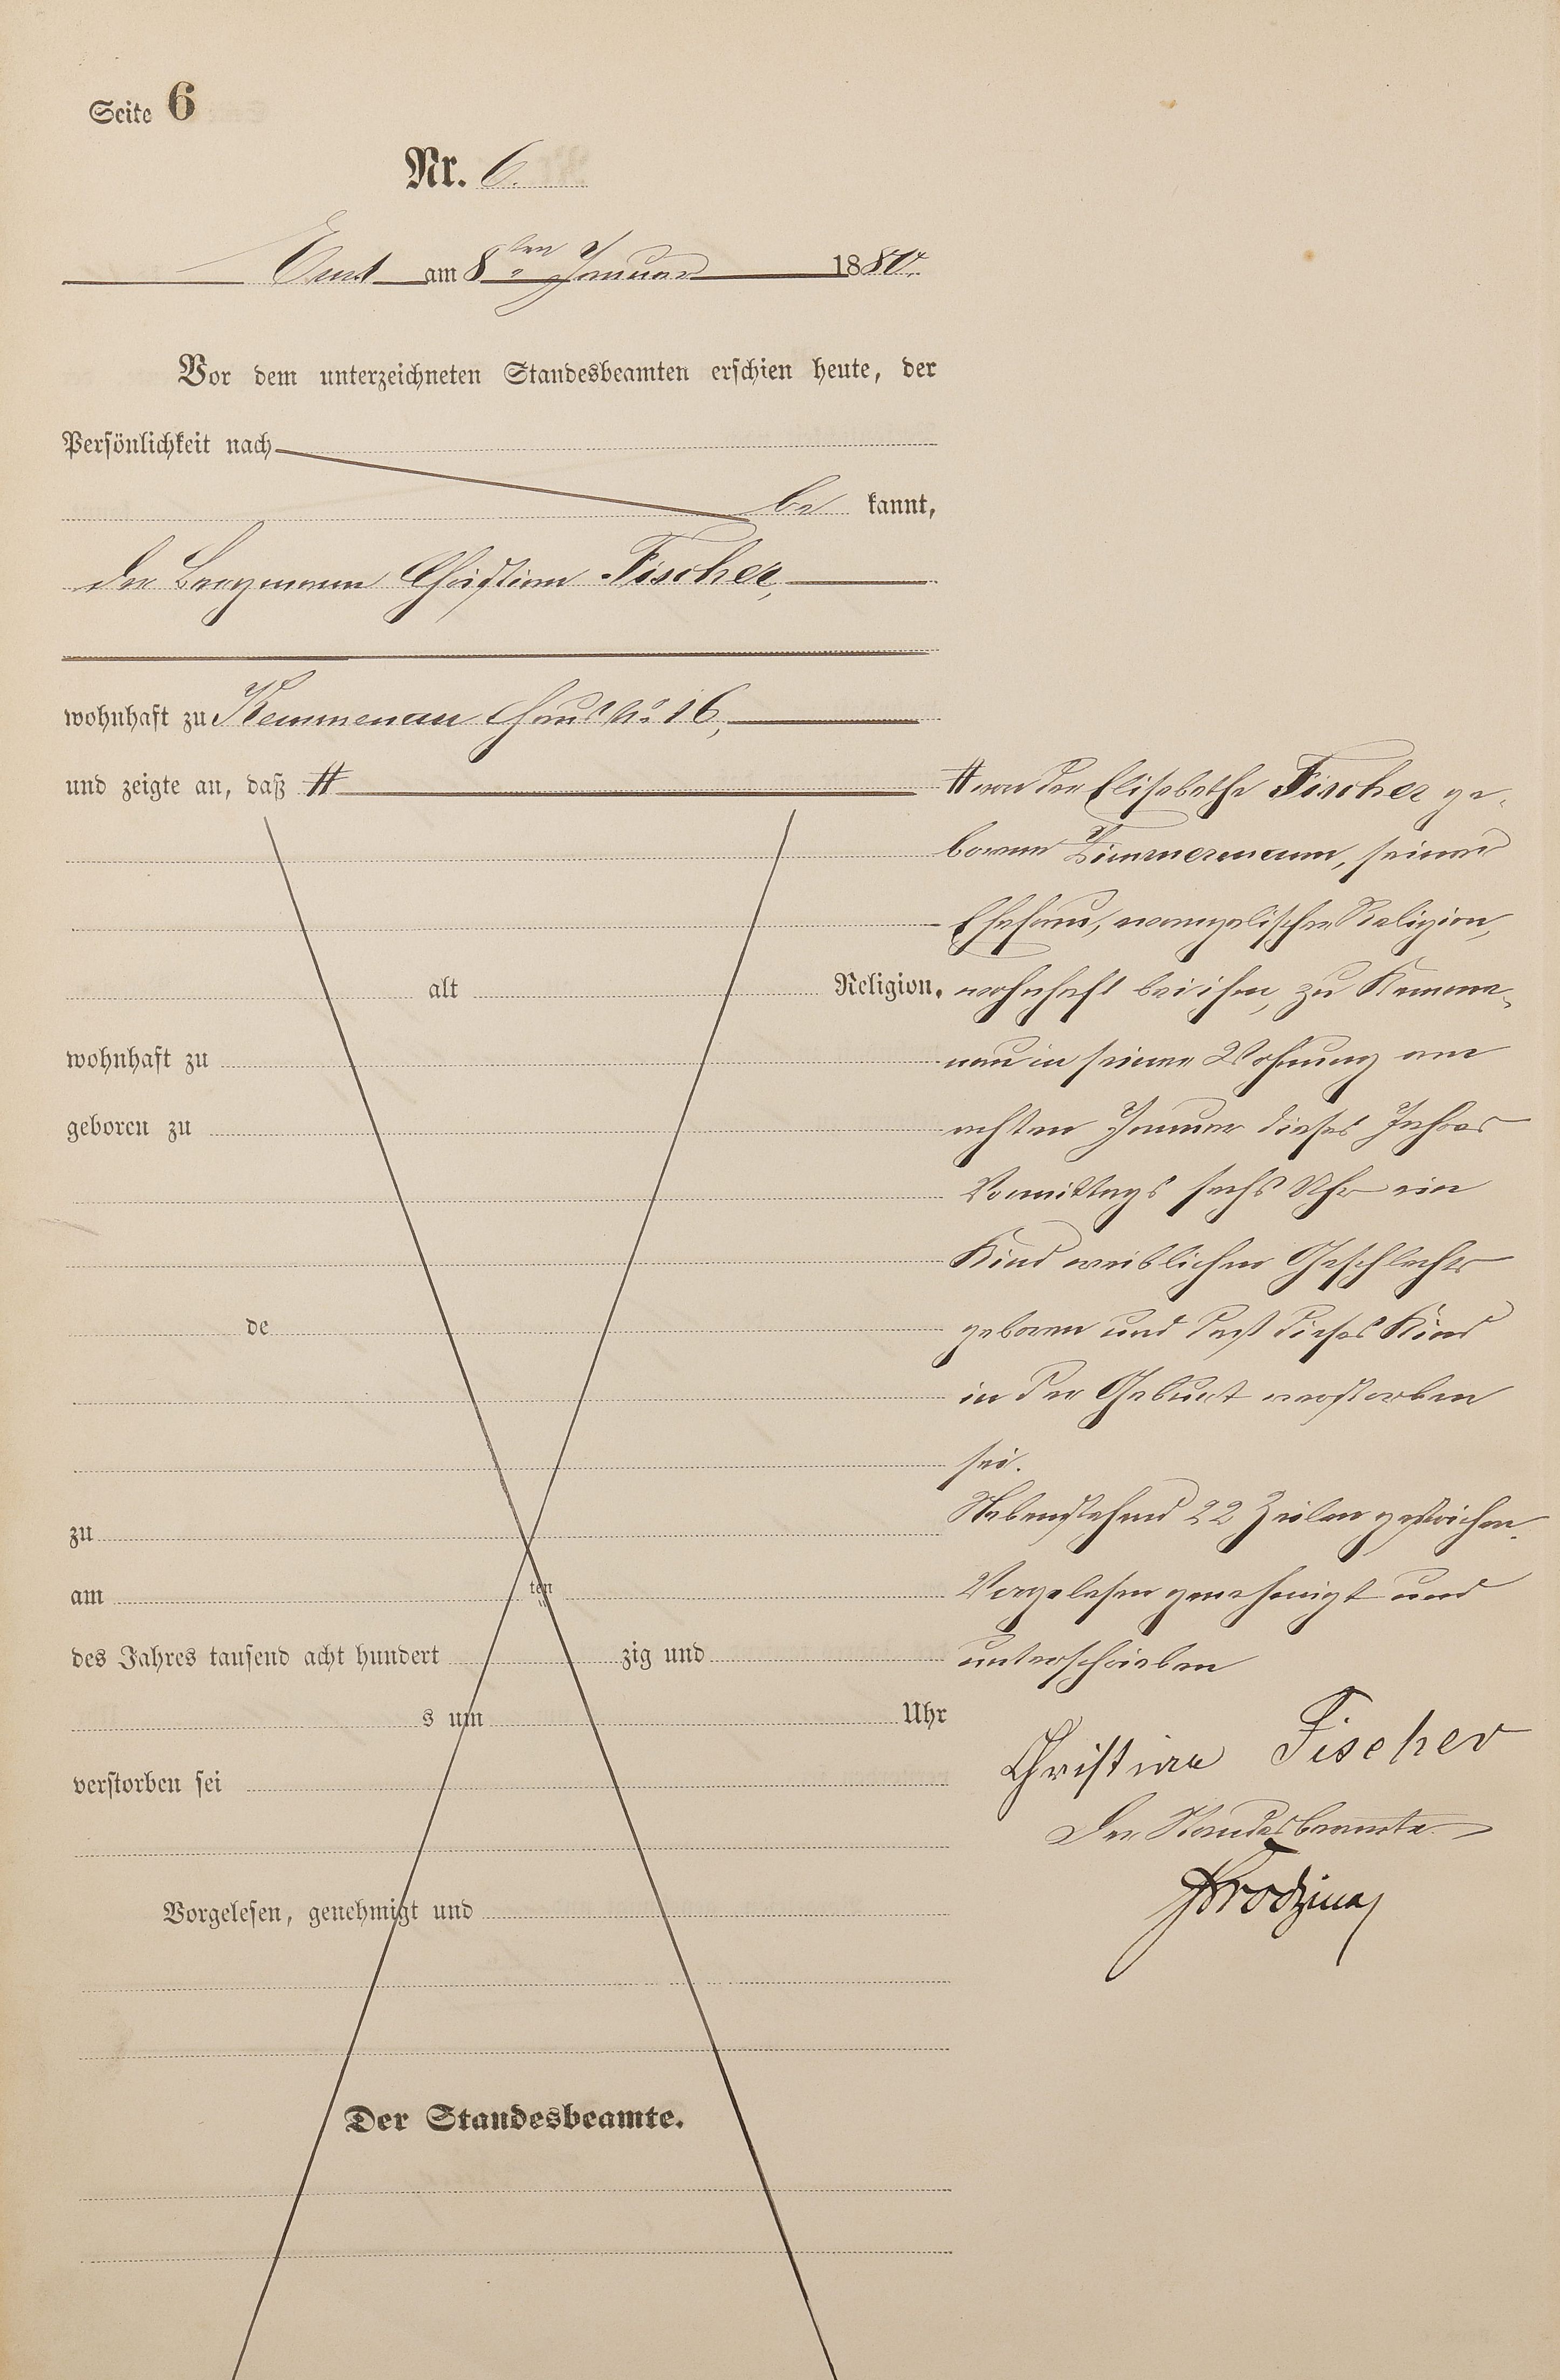 Seite 6
Nr. 6.
Ems am 8ten Januar 1880.
Vor dem unterzeichneten Standesbeamten erschien heute, der
Persönlichkeit nach
be kannt,
der Bergmann Christian Fischer,
wohnhaft zu Kemmenau Haus No 16,
und zeigte an, daß #
# von der Elisabethe Fischer ge-
borene Zimmermann, seiner
Ehefrau, evangelischer Religion,
alt Religion,
wohnhaft bei ihm, zu Kemme-
wohnhaft zu
nau in seiner Wohnung am
geboren zu
achten Januar dieses Jahres
Vormittags sechs Uhr ein
Kind weiblichen Geschlechts
de
geboren und daß dieses Kind
in der Geburt verstorben
sei.
zu
Nebenstehend 22 Zeilen gestrichen.
am ten
Vorgelesen genehmigt und
des Jahres tausend acht hundert zig und
unterschrieben
s um Uhr
Christian Fischer
verstorben sei
Der Standesbeamte
Vorgelesen, genehmigt und
Der Standesbeamte.